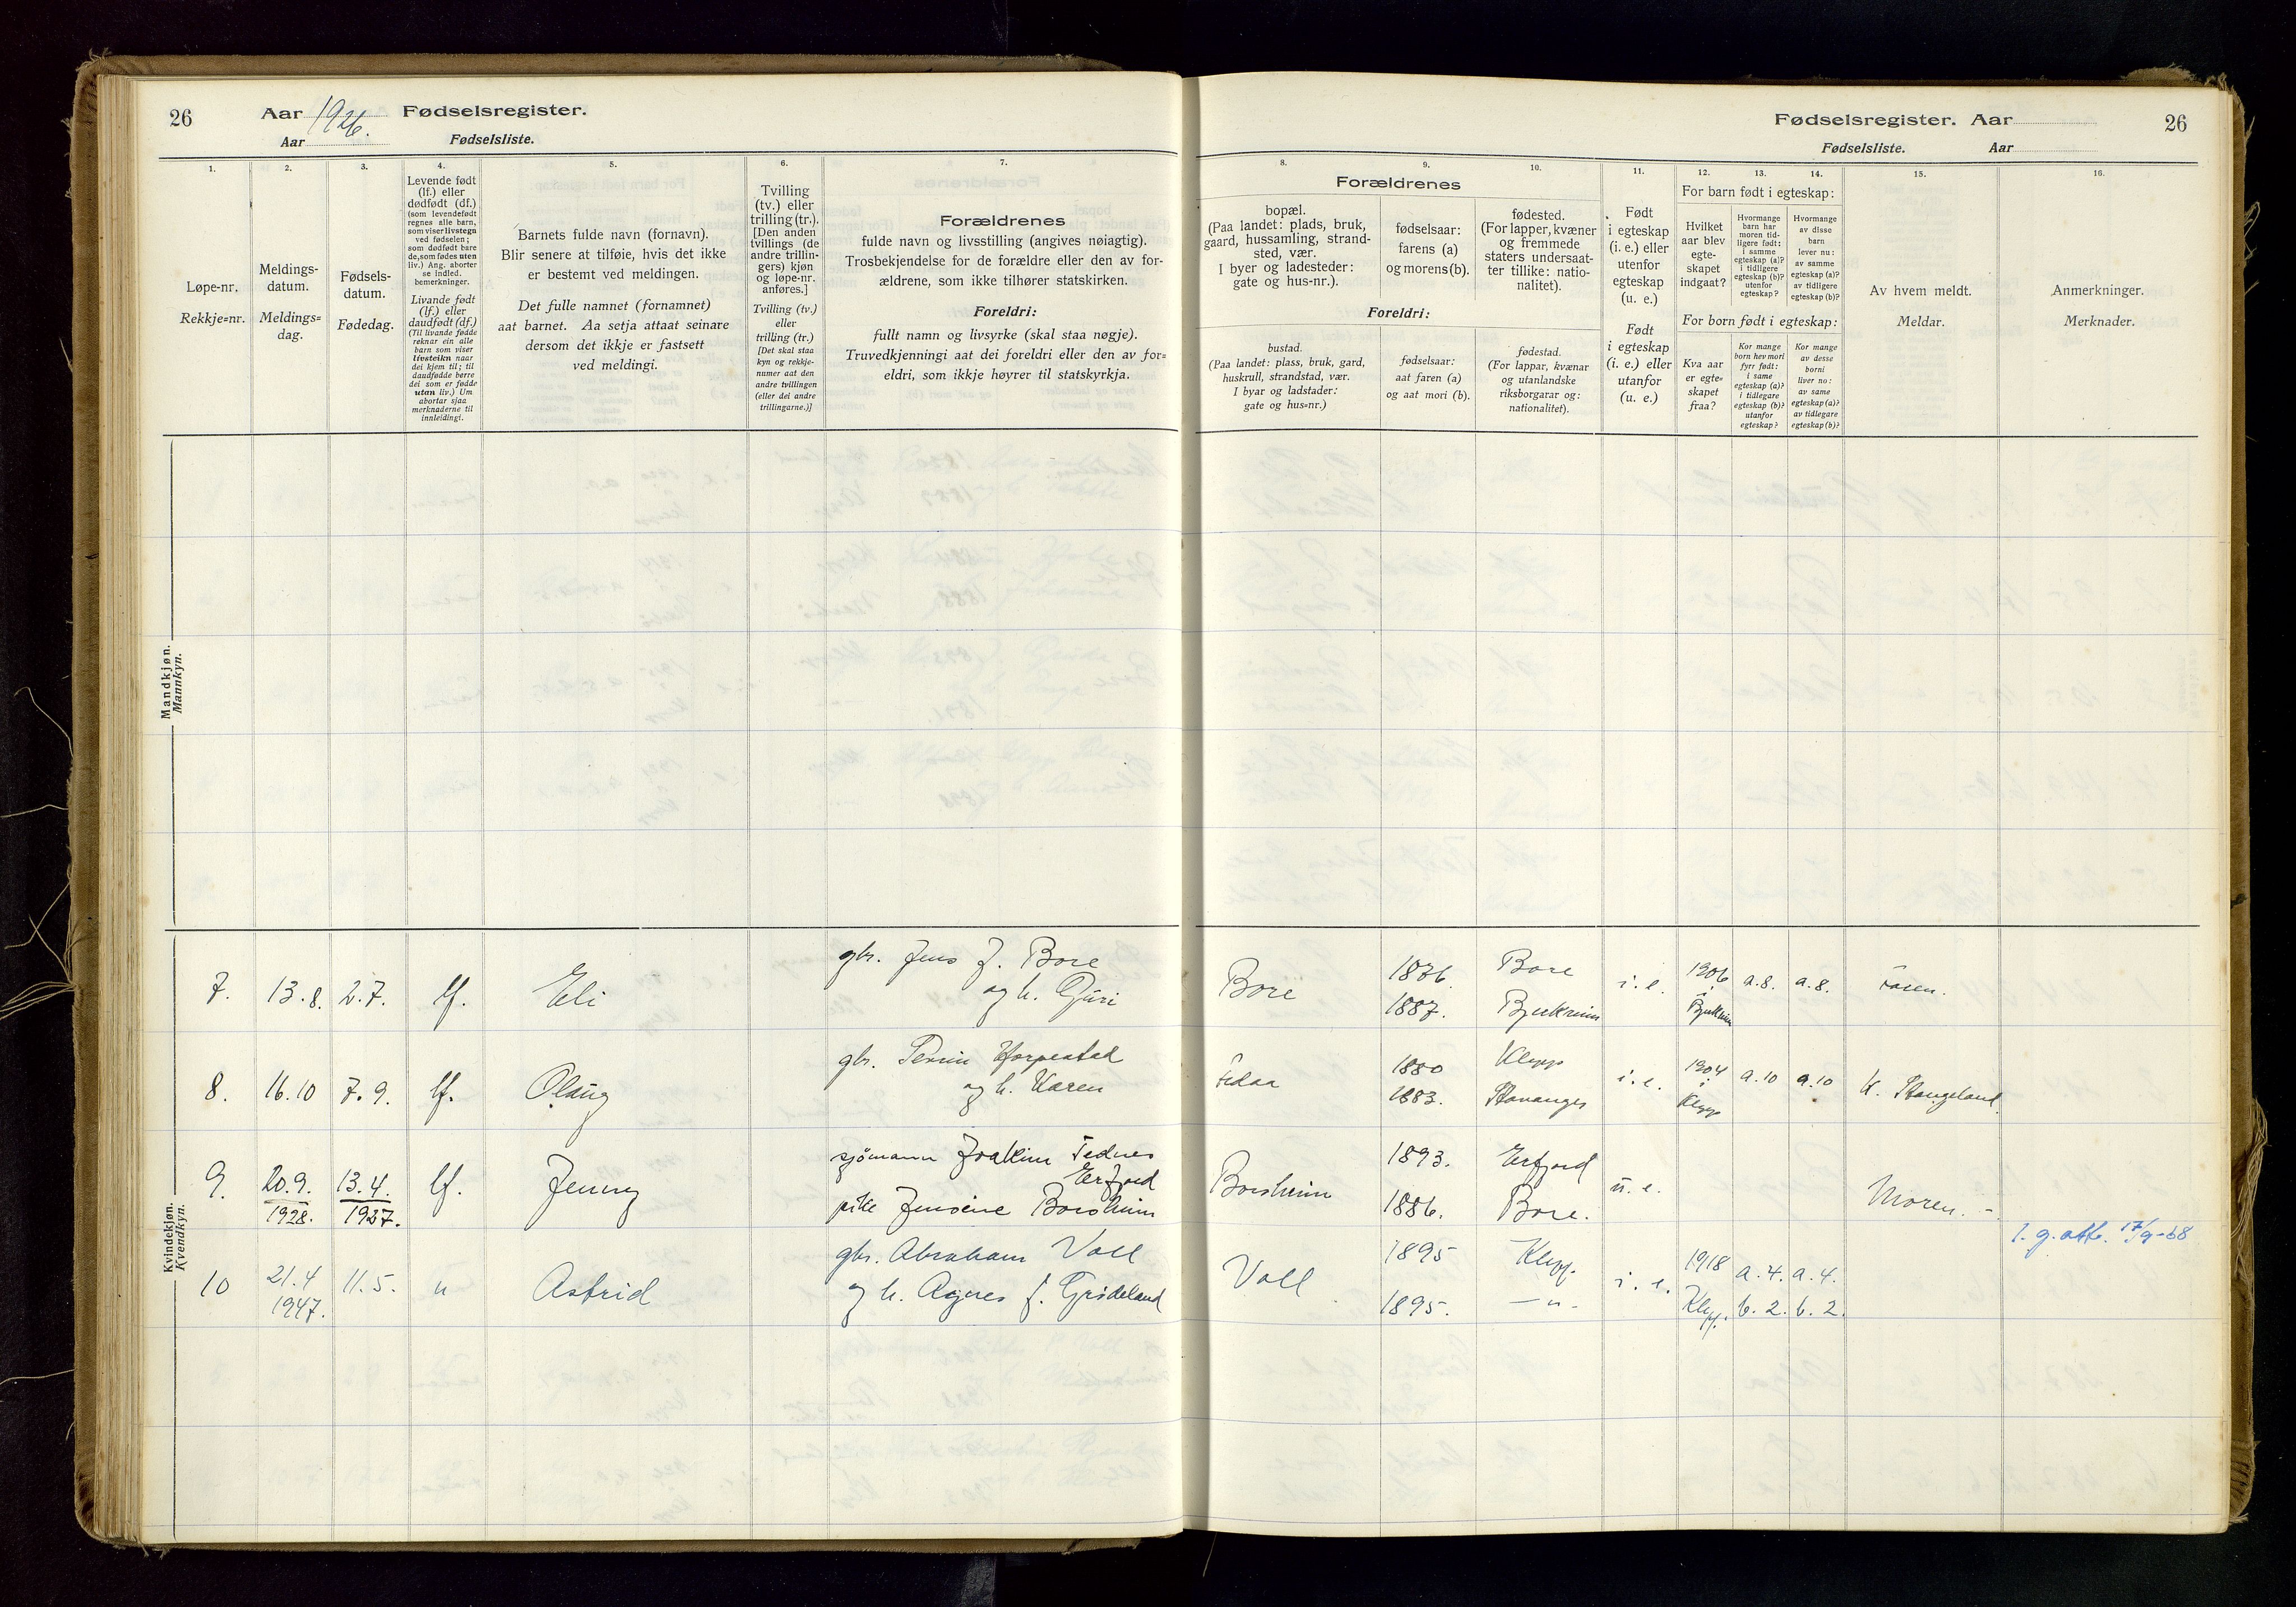 26 Aar 1926. Fødselsregister.
Aar Fødselsliste.
Fødselsregister. Aar 26
Fødselsliste. Aar
1.
Løpe-nr.
Rekkje=nr.
2.
Meldings-
datum.
Meldings=
dag.
3.
Fødsels-
datum.
Fødedag.
4.
Levende født
(lf.) eller
dødfødt (df.)
(som levendefødt
regnes alle barn,
som viser livstegn
ved fødselen;
som dødfødt bare
de, som fødes uten
liv.) Ang. aborter
se indled.
bemerkninger.
Livande født
(lf.) eller
daudfødt (df.)
(Til livande fødde
reknar ein alle
barn som viser
livsteikn naar
dei kjem til; til
daudfødde berre
dei som er fødde
utan liv.) Um
abortar sjaa
merknaderne til
innleidingi.
5.
Barnets fulde navn (fornavn).
Blir senere at tilføie, hvis det ikke
er bestemt ved meldingen.
Det fulle namnet (fornamnet)
aat barnet. Aa setja attaat seinare
dersom det ikkje er fastsett
ved meldingi.
6.
Tvilling
(tv.) eller
trilling (tr.).
[Den anden
tvillings (de
andre trillin-
gers) kjøn
og løpe-nr.
anføres.]
Tvilling (tv.)
eller
trilling (tr.)
[Det skal staa
kyn og rekkje-
numer aat den
andre tvillingen
(eller dei andre
trillingarne.)]
7.
Forældrenes
fulde navn og livsstilling (angives nøiagtig).
Trosbekjendelse for de forældre eller den av for-
ældrene, som ikke tilhører statskirken.
Foreldri:
fullt namn og livsyrke (skal staa nøgje).
Truvedkjenningi aat dei foreldri eller den av for=
eldri, som ikkje høyrer til statskyrkja.
Forældrenes
8.
bopæl.
(Paa landet: plads, bruk,
gaard, hussamling, strand-
sted, vær.
I byer og ladesteder:
gate og hus-nr.).
9.
fødselsaar:
farens (a)
og morens (b).
10.
fødested.
(For lapper, kvæner
og fremmede
staters undersaat-
ter tillike: natio-
nalitet).
Foreldri:
bustad.
(Paa landet: plass, bruk, gard,
huskrull, strandstad, vær.
I byar og ladstader:
gate og hus=nr.)
fødselsaar:
aat faren (a)
og aat mori (b).
fødestad.
(For lappar, kvænar
og utanlandske
riksborgarar og:
nationalitet).
11.
Født
i egteskap
(i. e.) eller
utenfor
egteskap
(u. e.)
Født
i egteskap
(i. e.) eller
utanfor
(u. e.)
12. 13. 14.
For barn født i egteskap:
Hvilket
aar blev
egte-
skapet
indgaat?
Hvormange
barn har
moren tid-
ligere født:
i samme
egteskap (a)?
i tidligere
egteskap (b)?
utenfor
egteskap?
Hvormange
av disse
barn
lever nu:
av samme
egteskap (a)?
av tidligere
egteskap (b)?
For born født i egteskap:
Kva aar
er egte-
skapet
fraa?
Kor mange
born hev mori
fyrr født:
i same
egteskap (a)?
i tidlegare
egteskap (b)?
utanfor
egteskap?
Kor mange
av desse
borni
liver no:
av same
egteskap (a)?
av tidlegare
egteskap (b)?
15.
Av hvem meldt.
Meldar.
16.
Anmerkninger.
Merknader.
Mandkjøn.
Mannkyn.
Kvindekjøn.
Kvendkyn.
7. 13.8. 2.7. lf. Eli gbr. Jens J. Bore
og h. Guri
Bore 1886. Bore i.e. 1906 a.8. a.8. Faren.
1887. Bjerkreim i Bjerkreim
8. 16.10 7.9. lf. Olaug gbr. Harpestad
og h. Karen
1880 Klepp i.e. 1904 a.10 a.10 K. Stangeland.
1883. Stavanger i Klepp
9. 20.9. 13.4. lf. Jenny sjømann Joakim Tednes
1928. 1927. Erfjord
pike Jensine Borsheim
Borsheim 1893. Erfjord u.e. Moren. -
1886. Bore.
10 21.4 11.5. " Astrid gbr. Abraham Voll
1947. og h. Agnes f. Grødeland
Voll 1895 Klepp. i.e. 1918 a.4. a.4. l. g. att. 17/9-68
1895. - " - Klepp. b.2. b.2.